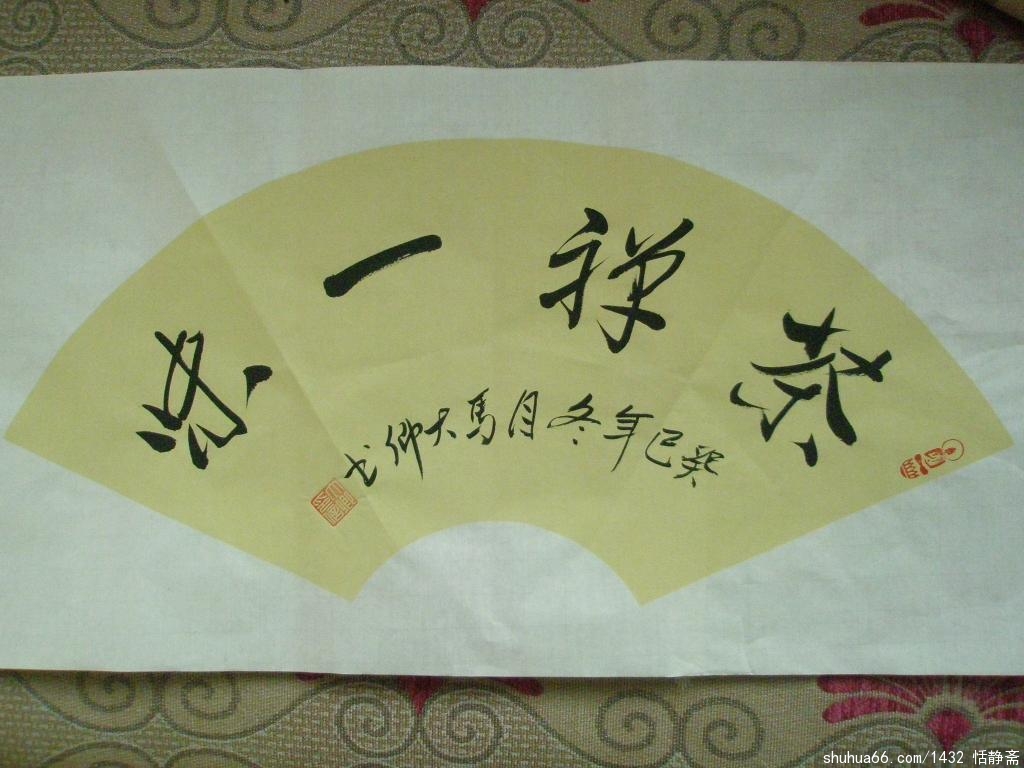 茶禅一味
癸巳年冬月馬大仰书
shuhua66.com/1432 恬静斋